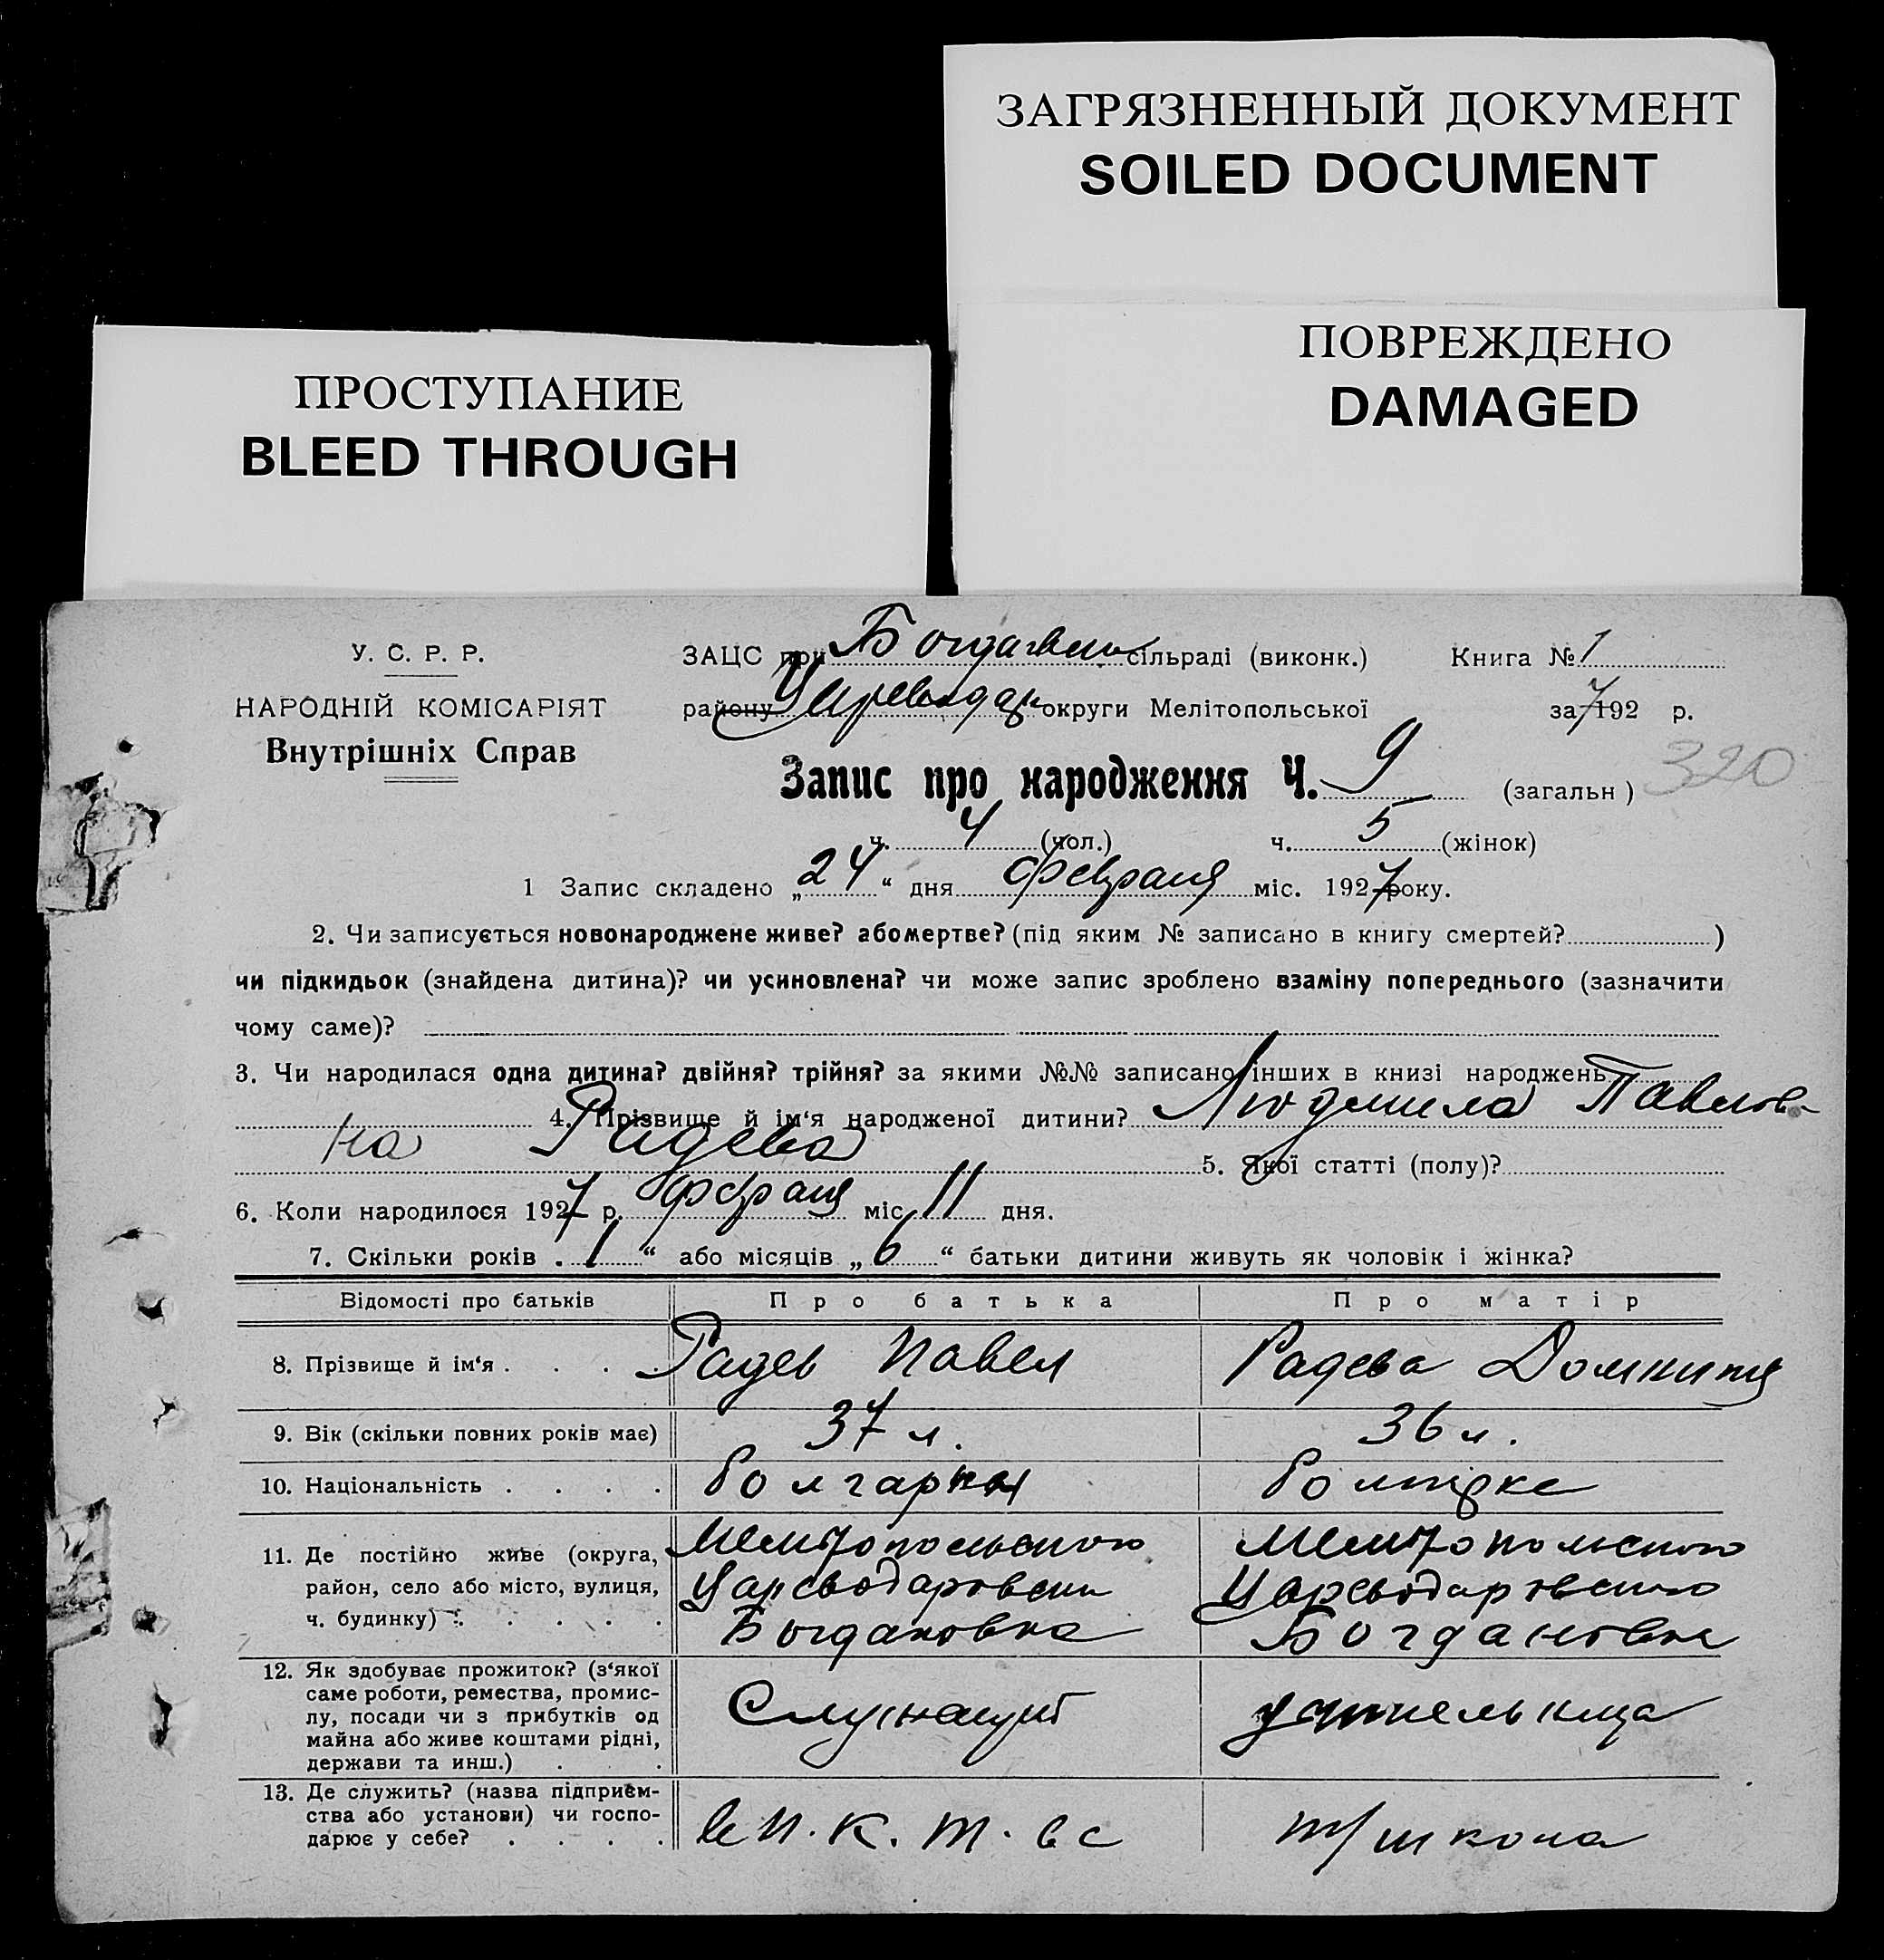 ЗАГРЯЗНЕННЫЙ ДОКУМЕНТ
SOILED DOCUMENT
ПОВРЕЖДЕНО
DAMAGED
ПРОСТУПАНИЕ
BLEED THROUGH
У. С. Р. Р.
НАРОДНІЙ КОМІСАРІЯТ
Внутрішніх Справ
ЗАЦС при сільраді (виконк.) Книга № 1
району округи Мелітопольської за 7 192 р.
Запис про народження Ч. 9 (загальн) 320
ч. 4 (чол.) ч. 5 (жінок)
1 Запис складено „24“ дня февраля міс. 1927 року.
2. Чи записується новонароджене живе? або мертве? (під яким № записано в книгу смертей? )
чи підкидьок (знайдена дитина)? чи усиновлена? чи може запис зроблено взаміну попереднього (зазначити
чому саме)?
3. Чи народилася одна дитина? двійня? трійня? за якими №№ записано інших в книзі народжень
4. Прізвище й ім‘я народженої дитини? Людмила Павлов-
на Радева 5. Якої статті (полу)?
6. Коли народилося 1927 р. февраля міс. 11 дня.
7. Скільки років „1“ або місяців „6“ батьки дитини живуть як чоловік і жінка?
Відомості про батьків Про батька Про матір
8. Прізвище й ім‘я . . . . Радев Павел Радева Домникия
9. Вік (скільки повних років має) 37 л. 36 л.
10. Національність . . . . болгарин болгарка
11. Де постійно живе (округа, Мелитопольского Мелитопольского
район, село або місто, вулиця, Цареводаровски Цареводаровского
ч. будинку) . . . . . Богдановка Богдановка
12. Як здобуває прожиток? (з‘якої
саме роботи, ремества, промис-
лу, посади чи з прибутків од Служащий учительница
майна або живе коштами рідні,
держави та инш.) . .
13. Де служить? (назва підприєм-
ства або установи) чи госпо-
дарює у себе? . . . . школа